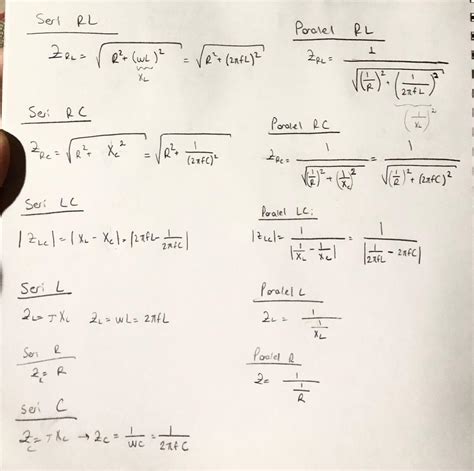 Seri RL
Z_RL = √(R² + (wL)²) = √(R² + (2πfL)²)
X_L
Seri RC
Z_RC = √(R² + X_C²) = √(R² + 1/(2πfC)²)
Seri LC
|Z_LC| = |X_L - X_C| = |2πfL - 1/(2πfC)|
Seri L
Z_L = JX_L Z_L = wL = 2πfL
Seri R
Z = R
Seri C
Z_C = JX_C → Z_C = 1/(wC) = 1/(2πfC)
Paralel RL
Z_RL = 1/√((1/R)² + (1/(2πfL))²)
(1/X_L)²
Paralel RC
Z_RC = 1/√((1/R)² + (1/X_C)²) = 1/√((1/R)² + (2πfC)²)
Paralel LC:
|Z_LC| = 1/|1/X_L - 1/X_C| = 1/|1/(2πfL) - 2πfC|
Paralel L
Z_L = 1/(1/X_L)
Paralel R
Z = 1/(1/R)